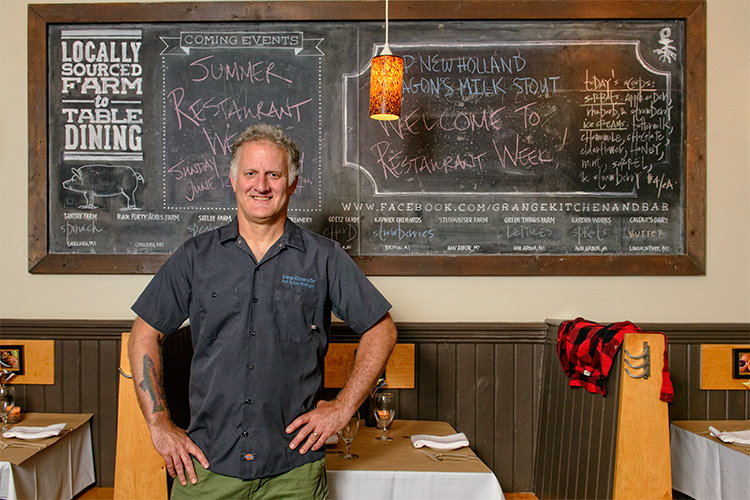 LOCALLY
SOURCED
FARM
to
TABLE
DINING
COMING EVENTS
SUMMER
RESTAURANT
WE
SUNDAY
JUNE
P-NEW HOLLAND
AGON'S MILK STOUT
WELCOME TO
RESTAURANT WEEK!
TODAY'S SCOOPS:
SORBETS:
rhubarb & strawberry
ice creams: buttermilk
chamomile, cheese
elderflower, honey
mint, sorrel
& strawberry
WWW.FACEBOOK.COM/GRANGEKITCHENANDBAR
TANTRE FARM
spinach
CHELSEA, MI
BLACK FORTY ACRES FARM
CHELSEA, MI
SEELEY FARM
AMERY
GOETZ FARM
chard
KAPNICK ORCHARDS
strawberries
BRITTON, MI
STEINHAUSER FARM
ANN ARBOR, MI
GREEN THINGS FARM
LETTUCES
ANN ARBOR, MI
GARDEN WORKS
sprouts
ANN ARBOR, MI
CALDER'S DAIRY
BUTTER
LINCOLN PARK, MI
Grange Kitchen & Bar
Dickies